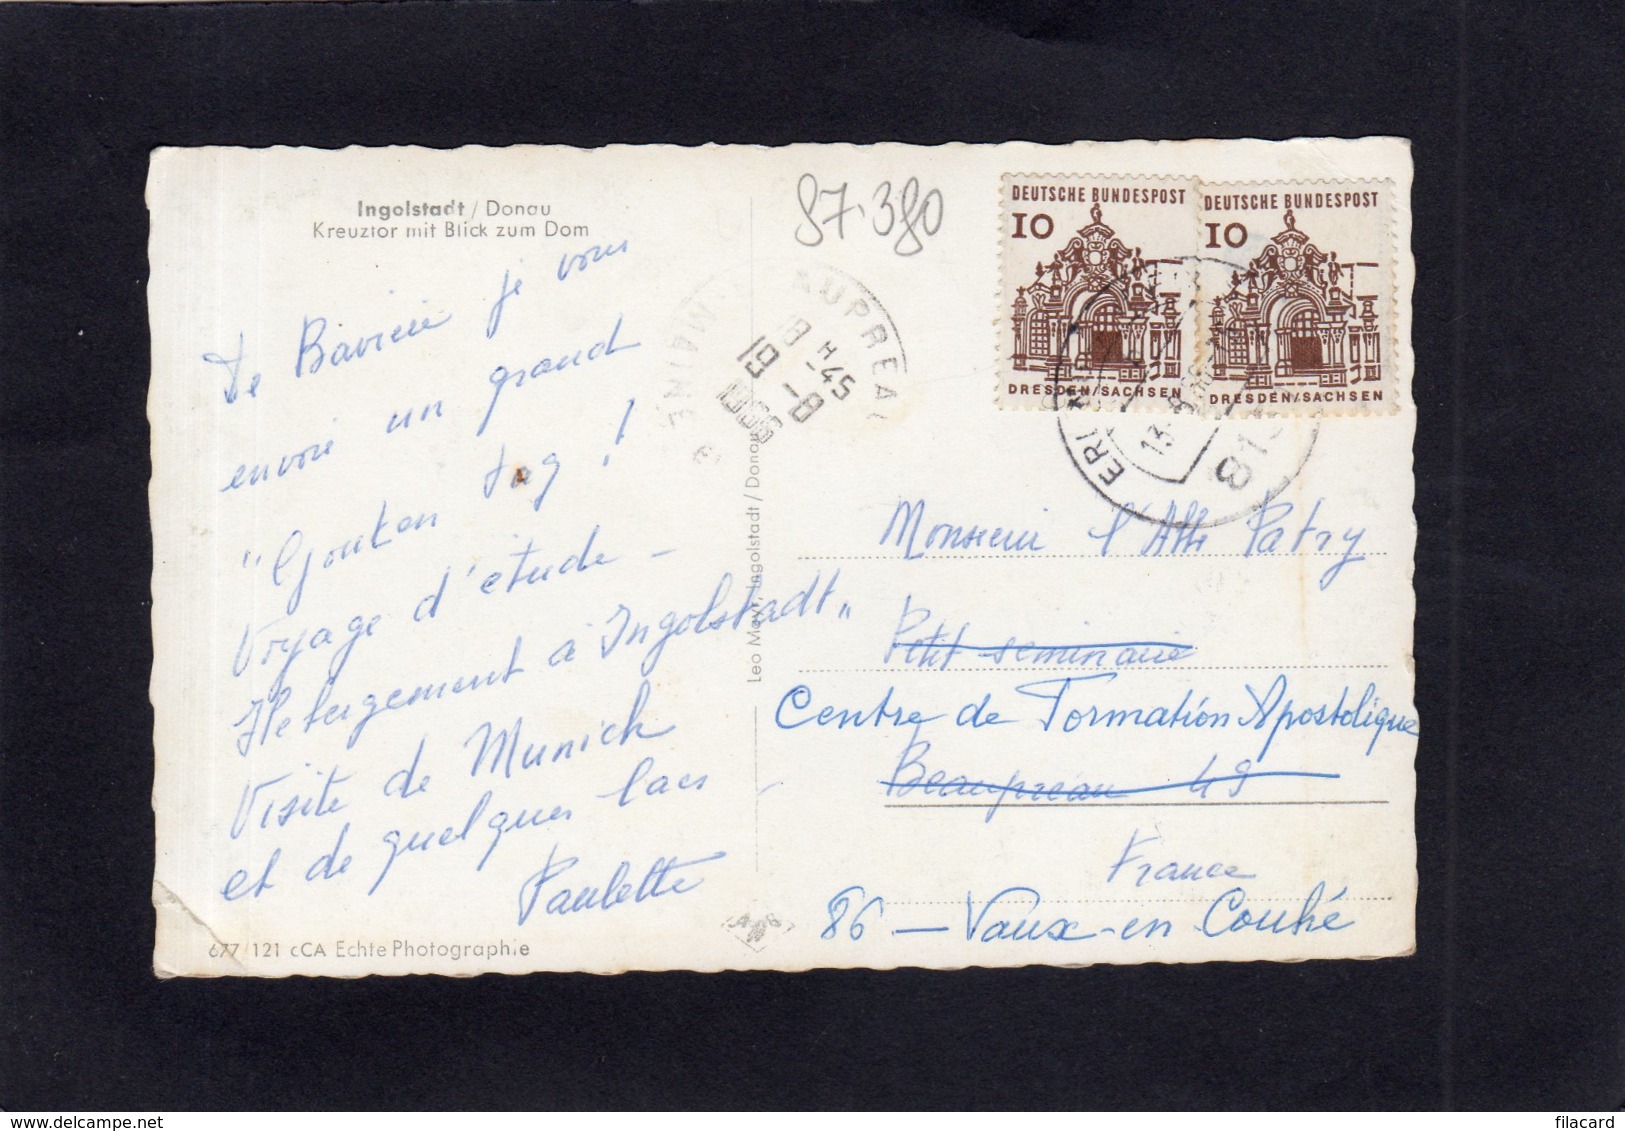 Ingolstadt / Donau
Kreuztor mit Blick zum Dom
De Bavière je vous
envoie un grand
"Gouten tag !
Voyage d'étude -
Hebergement à Ingolstadt"
Visite de Munich
et de quelques lacs
Paulette
677/121 cCA Echte Photographie
Leo Mayr, Ingolstadt / Donau
87.380
DEUTSCHE BUNDESPOST
10
DRESDEN/SACHSEN
DEUTSCHE BUNDESPOST
10
DRESDEN/SACHSEN
18 H -45
19 -8
1966
Monsieur l'Abbé Patry
Petit seminaire
Centre de Formation Apostolique
Beaupreau 49
France
86 - Vaux-en Couhé
filacard